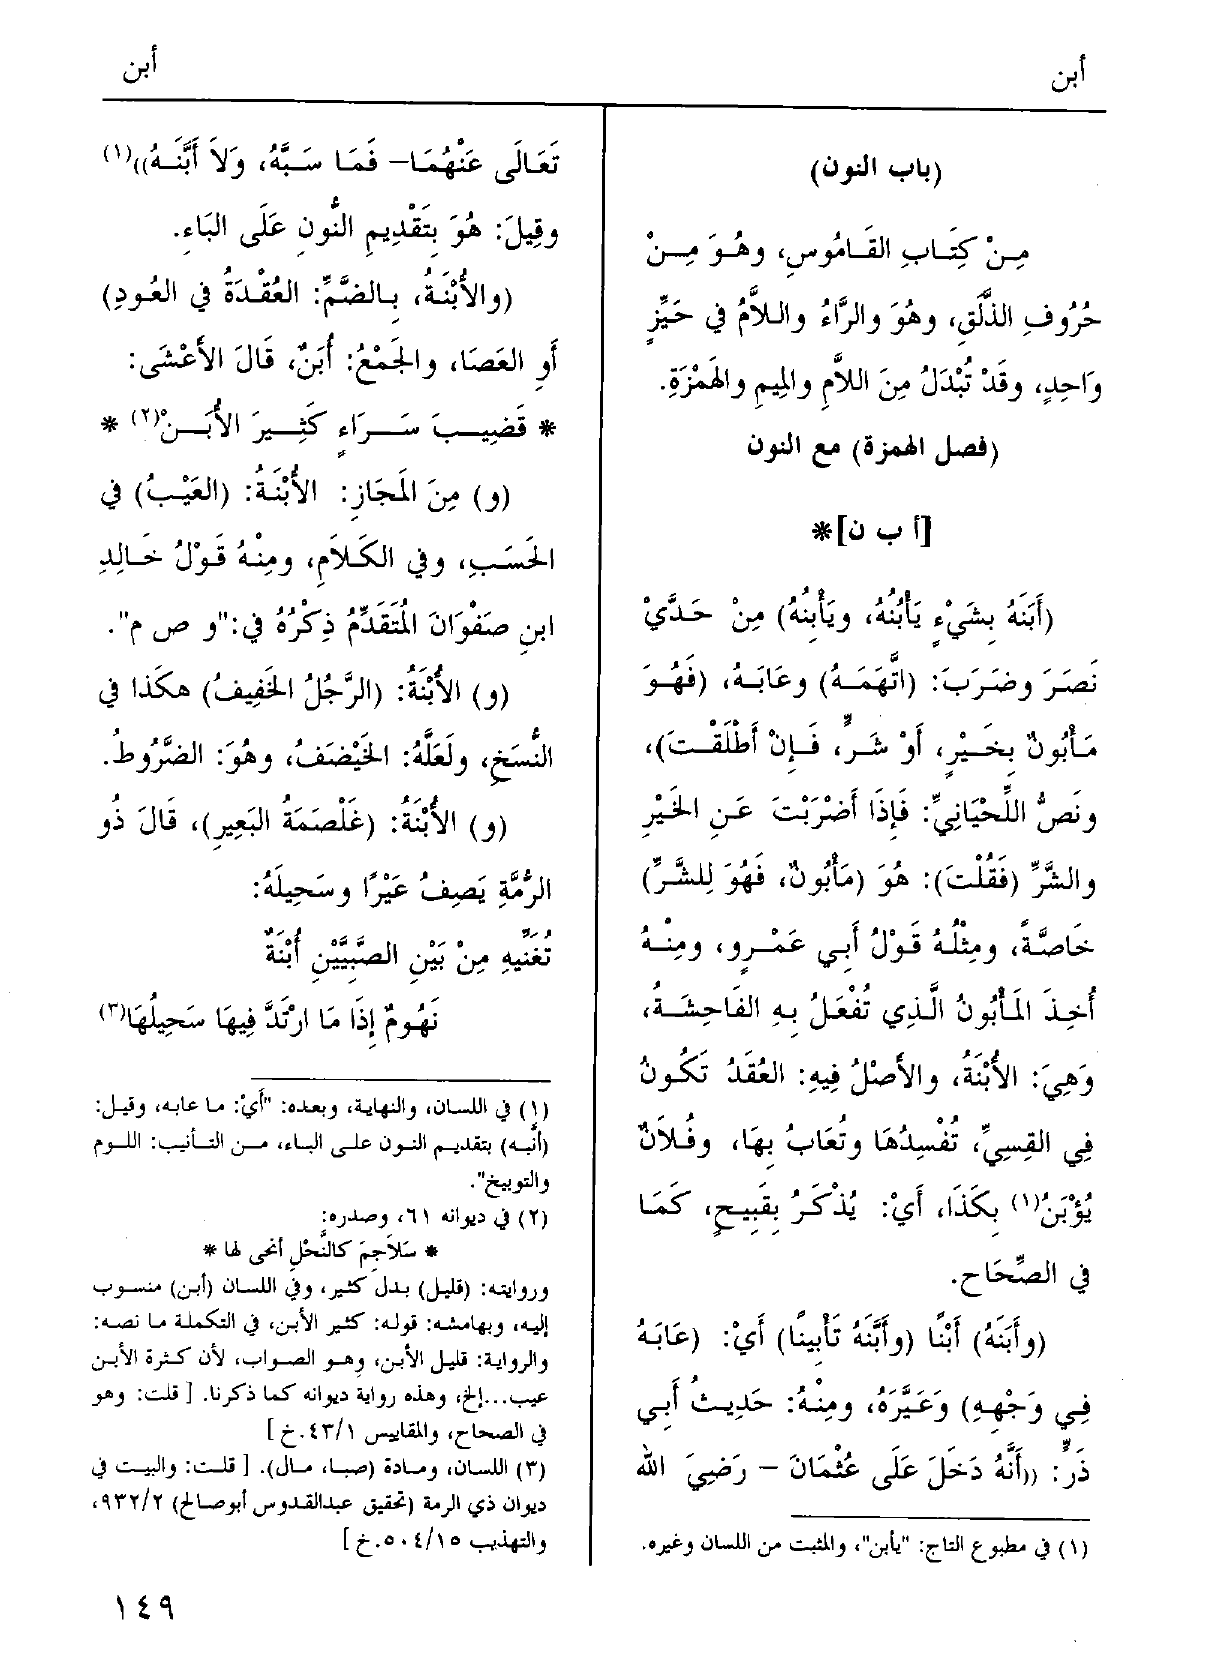 أبن
أبن
(باب النون)
مِنْ كِتَابِ القَامُوسِ، وهُوَ مِنْ
حُرُوفِ الذَّلَقِ، وهُوَ والرَّاءُ واللاَّمُ في حَيِّزٍ
وَاحِدٍ، وقَدْ تُبْدَلُ مِنَ اللاَّمِ والمِيمِ والهَمْزَةِ.
(فصل الهمزة) مع النون
[أ ب ن]*
(أَبَنَهُ بِشَيْءٍ يَأْبُنُهُ، ويَأْبِنُهُ) مِنْ حَدَّيْ
نَصَرَ وضَرَبَ: (اتَّهَمَهُ) وعَابَهُ، (فَهُوَ
مَأْبُونٌ بِخَيْرٍ، أَوْ شَرٍّ، فَإِنْ أَطْلَقْتَ)،
ونَصُّ اللِّحْيَانِيِّ: فَإِذَا أَضْرَبْتَ عَنِ الخَيْرِ
والشَّرِّ (فَقُلْتَ): هُوَ (مَأْبُونٌ، فَهُوَ لِلشَّرِّ)
خَاصَّةً، ومِثْلُهُ قَوْلُ أَبِي عَمْرٍو، ومِنْهُ
أُخِذَ المَأْبُونُ الَّذِي تُفْعَلُ بِهِ الفَاحِشَةُ،
وَهِيَ: الأُبْنَةُ، والأَصْلُ فِيهِ: العُقَدُ تَكُونُ
فِي القِسِيِّ، تُفْسِدُهَا وتُعَابُ بِهَا، وفُلاَنٌ
يُؤْبَنُ(١) بِكَذَا، أَيْ: يُذْكَرُ بِقَبِيحٍ، كَمَا
في الصِّحَاحِ.
(وأَبَنَهُ) أَبْنًا (وأَبَّنَهُ تَأْبِينًا) أَيْ: (عَابَهُ
فِي وَجْهِهِ) وَعَيَّرَهُ، ومِنْهُ: حَدِيثُ أَبِي
ذَرٍّ: ((أَنَّهُ دَخَلَ عَلَى عُثْمَانَ – رَضِيَ الله
(١) في مطبوع التاج: "يأبن"، والمثبت من اللسان وغيره.
تَعَالَى عَنْهُمَا– فَمَا سَبَّهُ، وَلاَ أَبَّنَهُ))(١)
وقِيلَ: هُوَ بِتَقْدِيمِ النُّونِ عَلَى البَاءِ.
(والأُبْنَةُ، بِالضَّمِّ: العُقْدَةُ في العُودِ)
أَوِ العَصَا، والجَمْعُ: أُبَنٌ، قَالَ الأَعْشَى:
* قَضِيبَ سَرَاءٍ كَثِيرَ الأُبَنْ(٢) *
(و) مِنَ المَجَازِ: الأُبْنَةُ: (العَيْبُ) في
الحَسَبِ، وفي الكَلاَمِ، ومِنْهُ قَوْلُ خَالِدِ
ابنِ صَفْوَانَ المُتَقَدِّمُ ذِكْرُهُ في:"و ص م".
(و) الأُبْنَةُ: (الرَّجُلُ الخَفِيفُ) هكَذا في
النُّسَخِ، ولَعَلَّهُ: الخَيْضَفُ، وهُوَ: الضَّرُوطُ.
(و) الأُبْنَةُ: (غَلْصَمَةُ البَعِيرِ)، قَالَ ذُو
الرُّمَّةِ يَصِفُ عَيْرًا وسَحِيلَهُ:
تُغَنِّيهِ مِنْ بَيْنِ الصَّبِيَّيْنِ أُبْنَةٌ
نَهُومٌ إِذَا مَا ارْتَدَّ فِيهَا سَحِيلُهَا(٣)
(١) في اللسان، والنهاية، وبعده: "أَيْ: ما عابه، وقيل:
(أنَّبه) بتقديم النون على الباء، من التأنيب: اللوم
والتوبيخ".
(٢) في ديوانه ٦١، وصدره:
* سَلاَجِمَ كالنَّحْلِ أنحى لها *
وروايته: (قليل) بدل كثير، وفي اللسان (أبن) منسوب
إليه، وبهامشه: قوله: كثير الأبن، في التكملة ما نصه:
والرواية: قليل الأبن، وهو الصواب، لأن كثرة الأبن
عيب...إلخ، وهذه رواية ديوانه كما ذكرنا. [ قلت: وهو
في الصحاح، والمقاييس ٤٣/١.خ]
(٣) اللسان، ومادة (صبا، مال). [ قلت: والبيت في
ديوان ذي الرمة (تحقيق عبدالقدوس أبوصالح) ٩٣٢/٢،
والتهذيب ٥٠٤/١٥.خ ]
١٤٩